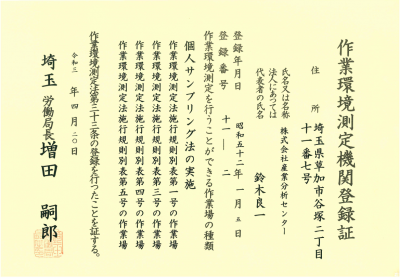 作業環境測定機関登録証
住所
埼玉県草加市谷塚二丁目
十一番七号
氏名又は名称
株式会社産業分析センター
法人にあっては
代表者の氏名
鈴木良一
登録年月日 昭和五十二年一月五日
登録番号 十一―二
作業環境測定を行うことができる作業場の種類
個人サンプリング法の実施
作業環境測定法施行規則別表第一号の作業場
作業環境測定法施行規則別表第三号の作業場
作業環境測定法施行規則別表第四号の作業場
作業環境測定法施行規則別表第五号の作業場
作業環境測定法第三十三条の登録を行つたことを証する。
令和三年四月二〇日
埼玉労働局長 増田嗣郎